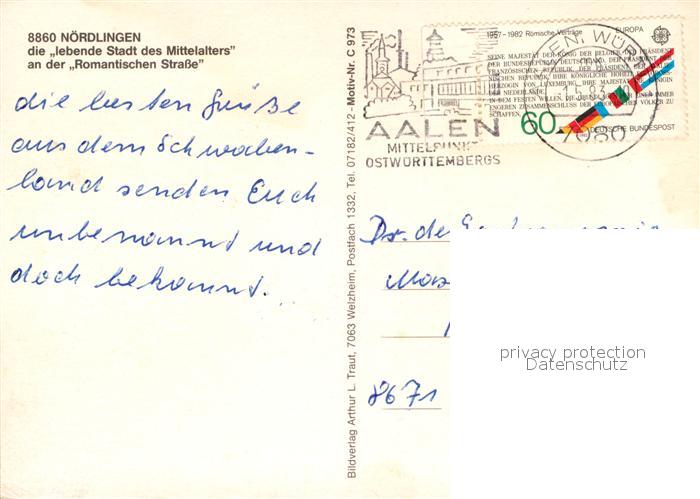 8860 NÖRDLINGEN
die „lebende Stadt des Mittelalters"
an der „Romantischen Straße"
die besten Grüße
aus dem Schwaben-
land senden Euch
unbenannt und
doch bekannt.
Bildverlag Arthur L. Traut, 7063 Welzheim, Postfach 1332, Tel. 07182/412 - Motiv-Nr. C 973
AALEN
MITTELPUNKT
OSTWÜRTTEMBERGS
1957-1982 Römische Verträge EUROPA
SEINE MAJESTÄT DER KÖNIG DER BELGIER, DER PRÄSIDENT
DER BUNDESREPUBLIK DEUTSCHLAND, DER PRÄSIDENT
FRANZÖSISCHEN REPUBLIK, DER PRÄSIDENT DER
HERZOGIN VON LUXEMBURG, IHRE MAJESTÄT DIE KÖNIGIN
DER NIEDERLANDE,
IN DEM FESTEN WILLEN, DIE GRUNDLAGEN FÜR EINEN IMMER
ENGEREN ZUSAMMENSCHLUSS DER EUROPÄISCHEN VÖLKER ZU
SCHAFFEN
60
DEUTSCHE BUNDESPOST
7080
8671
privacy protection
Datenschutz